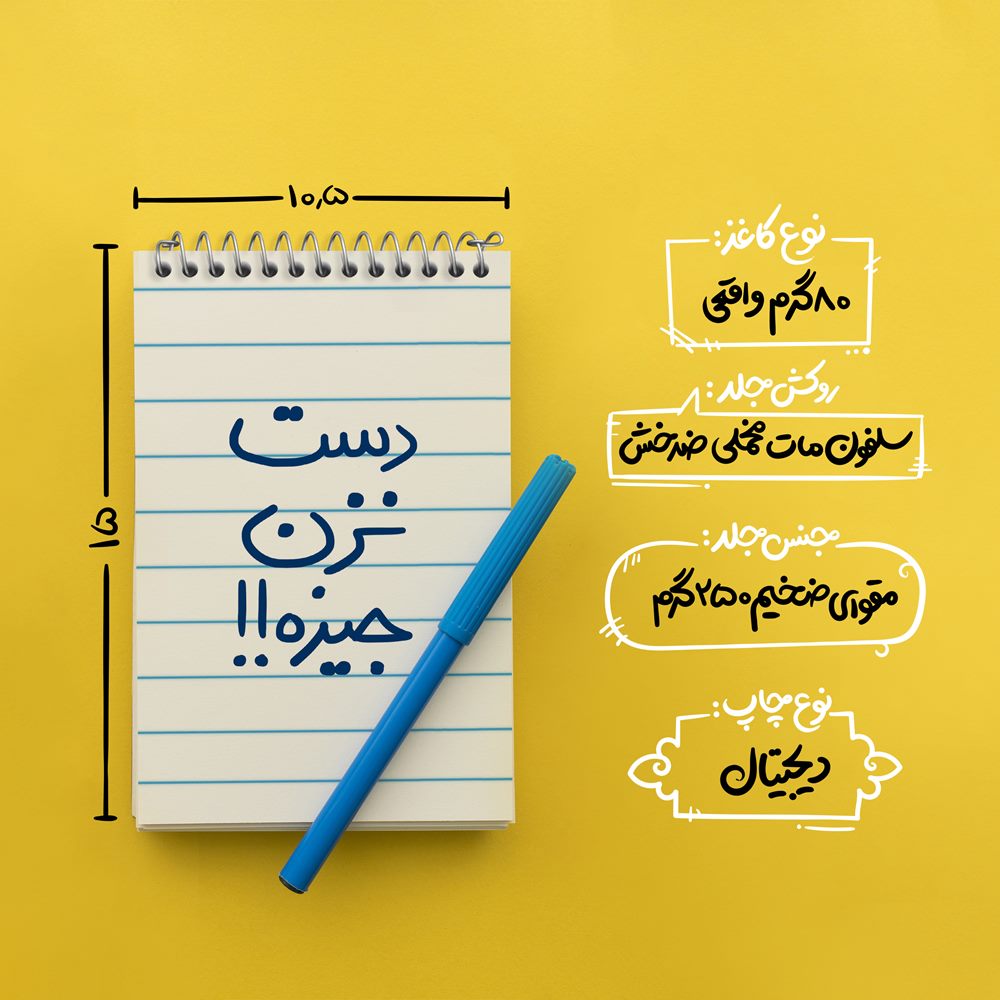 ۱۰,۵
۱۵
دست
نزن
جیزه!!
نوع کاغذ:
۸۰گرم واقعی
روکش جلد:
سلفون مات مخملی ضدخش
جنس جلد:
مقوای ضخیم ۲۵۰گرم
نوع چاپ:
دیجیتال